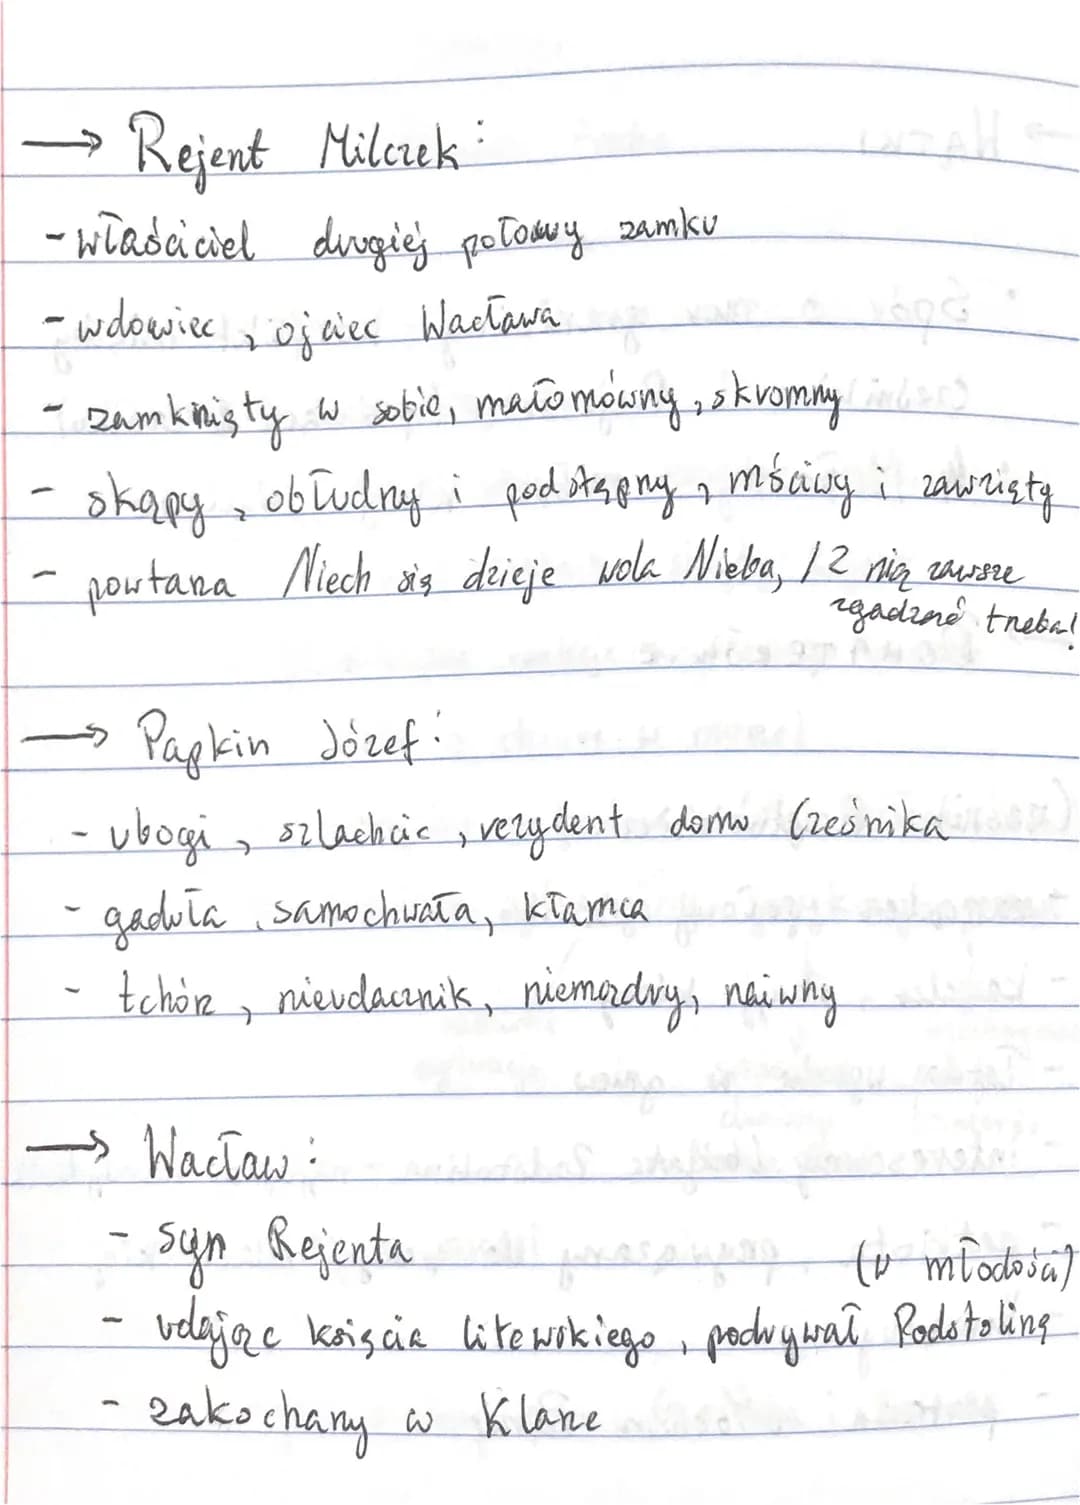 → Rejent Milczek:
- właściciel drugiej połowy zamku
- wdowiec, ojciec Wacława
- zamknięty w sobie, małomówny, skromny
- skąpy, obłudny i podstępny, mściwy i zawzięty
- powtarza Niech się dzieje wola Nieba, / Z nią zawsze
zgadzać trzeba!
→ Papkin Józef:
- ubogi, szlachcic, rezydent domu Cześnika
- gaduła, samochwała, kłamca
- tchórz, nieudacznik, niemądry, naiwny
→ Wacław:
- syn Rejenta
(w młodości)
- udając księcia litewskiego, podrywał Podstolinę
- zakochany w Klarze